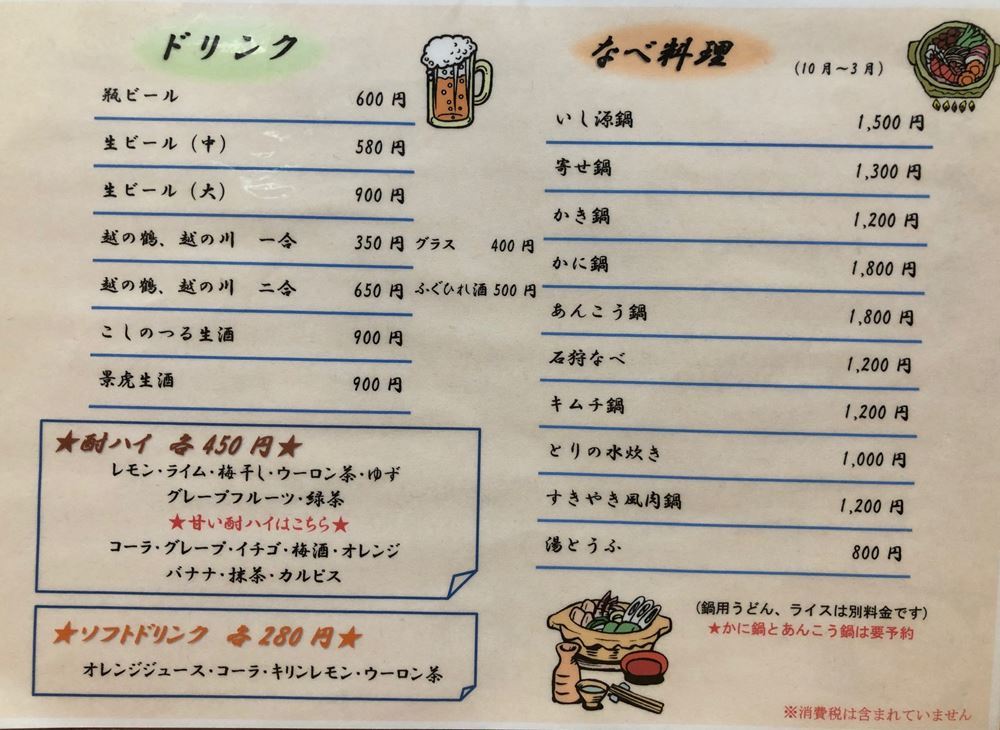 ドリンク
瓶ビール 600円
生ビール（中） 580円
生ビール（大） 900円
越の鶴、越の川 一合 350円 グラス 400円
越の鶴、越の川 二合 650円 ふぐひれ酒 500円
こしのつる生酒 900円
景虎生酒 900円
★酎ハイ 各450円★
レモン・ライム・梅干し・ウーロン茶・ゆず
グレープフルーツ・緑茶
★甘い酎ハイはこちら★
コーラ・グレープ・イチゴ・梅酒・オレンジ
バナナ・抹茶・カルピス
★ソフトドリンク 各280円★
オレンジジュース・コーラ・キリンレモン・ウーロン茶
なべ料理 （10月～3月）
いし源鍋 1,500円
寄せ鍋 1,300円
かき鍋 1,200円
かに鍋 1,800円
あんこう鍋 1,800円
石狩なべ 1,200円
キムチ鍋 1,200円
とりの水炊き 1,000円
すきやき風肉鍋 1,200円
湯とうふ 800円
（鍋用うどん、ライスは別料金です）
★かに鍋とあんこう鍋は要予約
※消費税は含まれていません